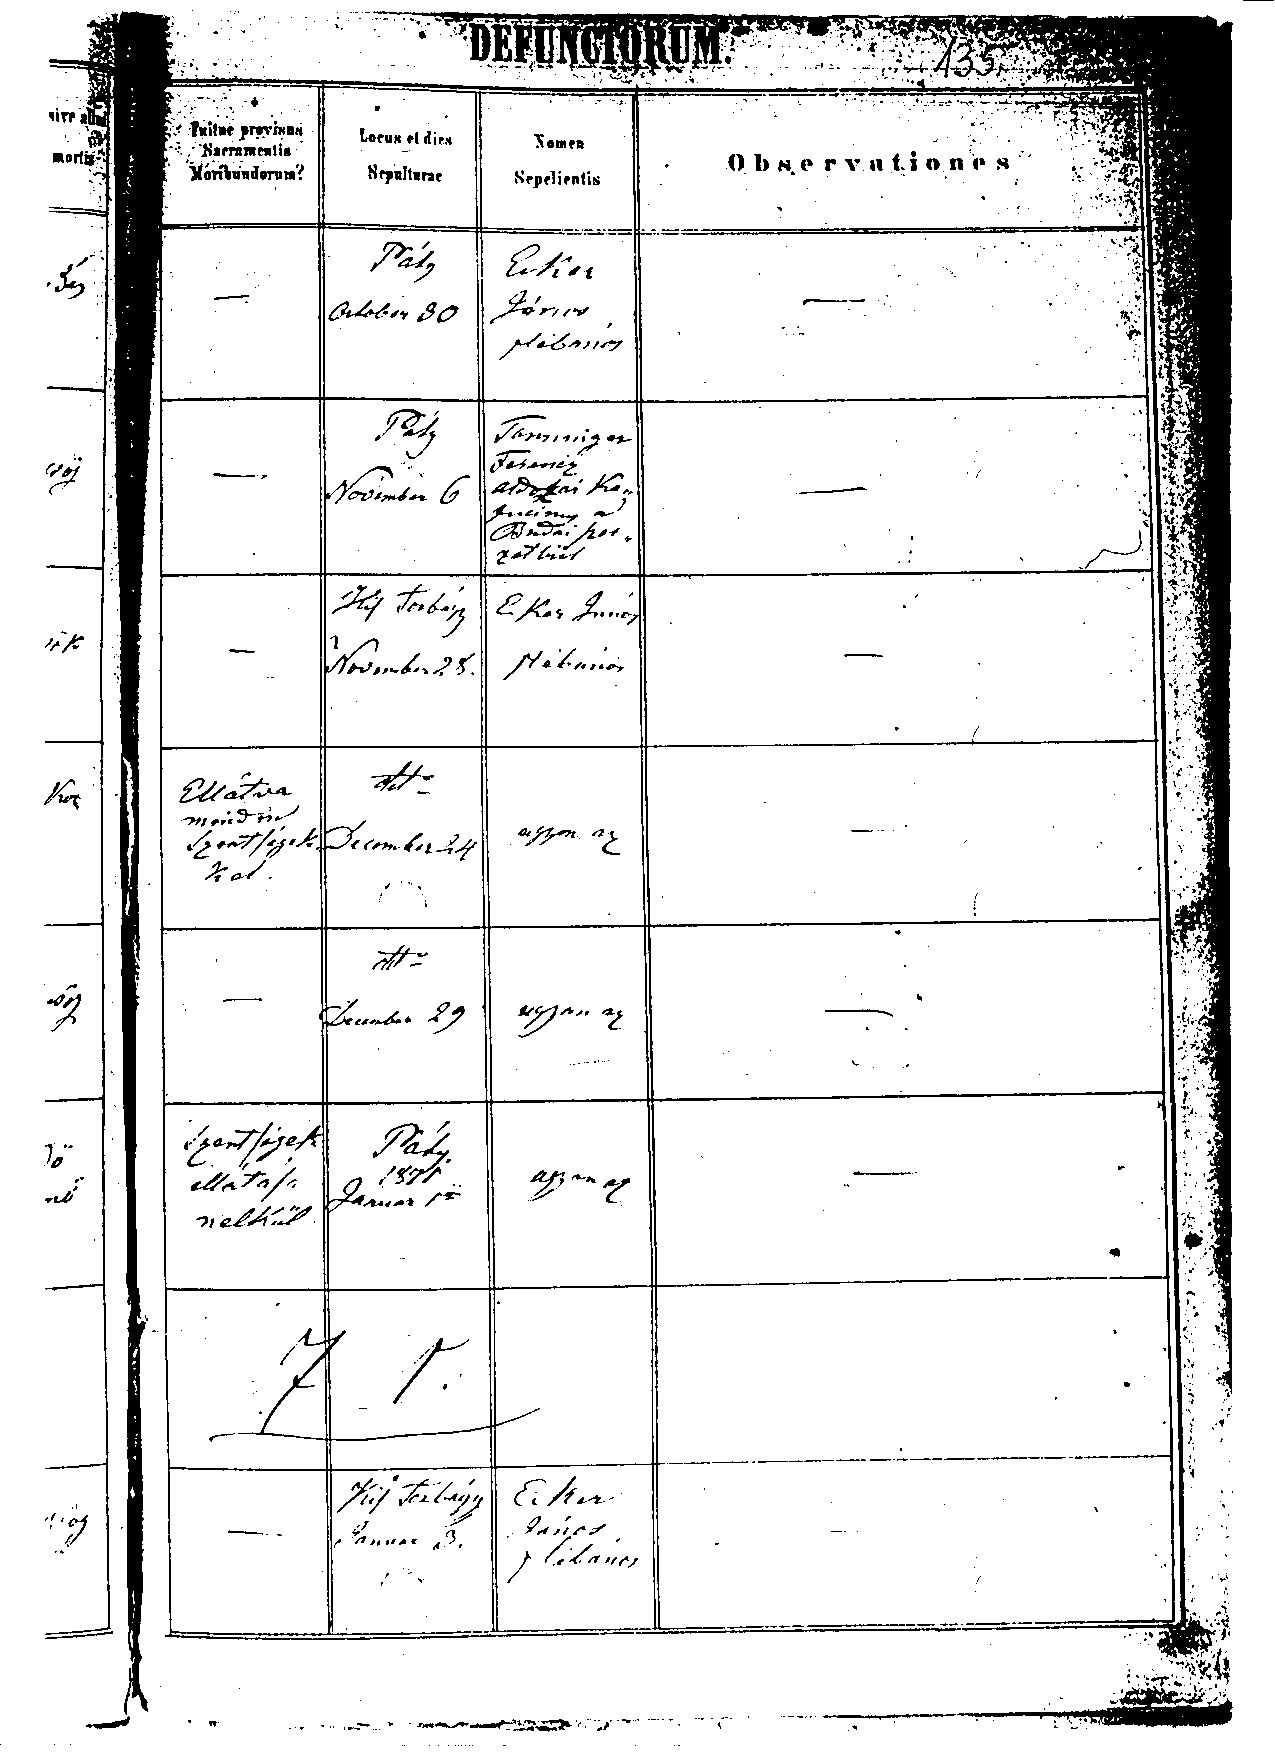 DEFUNCTORUM.
135.
mortis
Fuitne provisus
Sacramentis
Moribundorum?
Locus et dies
Sepulturae
Nomen
Sepelientis
Observationes
—
Páty
October 30
Ecker
János
plébános
—
—
Páty
November 6
Ferencz
a
Budai
—
—
Kis Torbágy
November 28.
Ecker János
plébános
—
Ellátva
minden
Szentségek
kel.
dtto
December 24
ugyan az
—
—
dtto
December 29
ugyan az
—
Szentségek
ellátása
nélkül
Páty
1871
Januar 1ő
ugyan az
—
—
Kis Torbágy
Januar 3.
Ecker
János
plébános
—